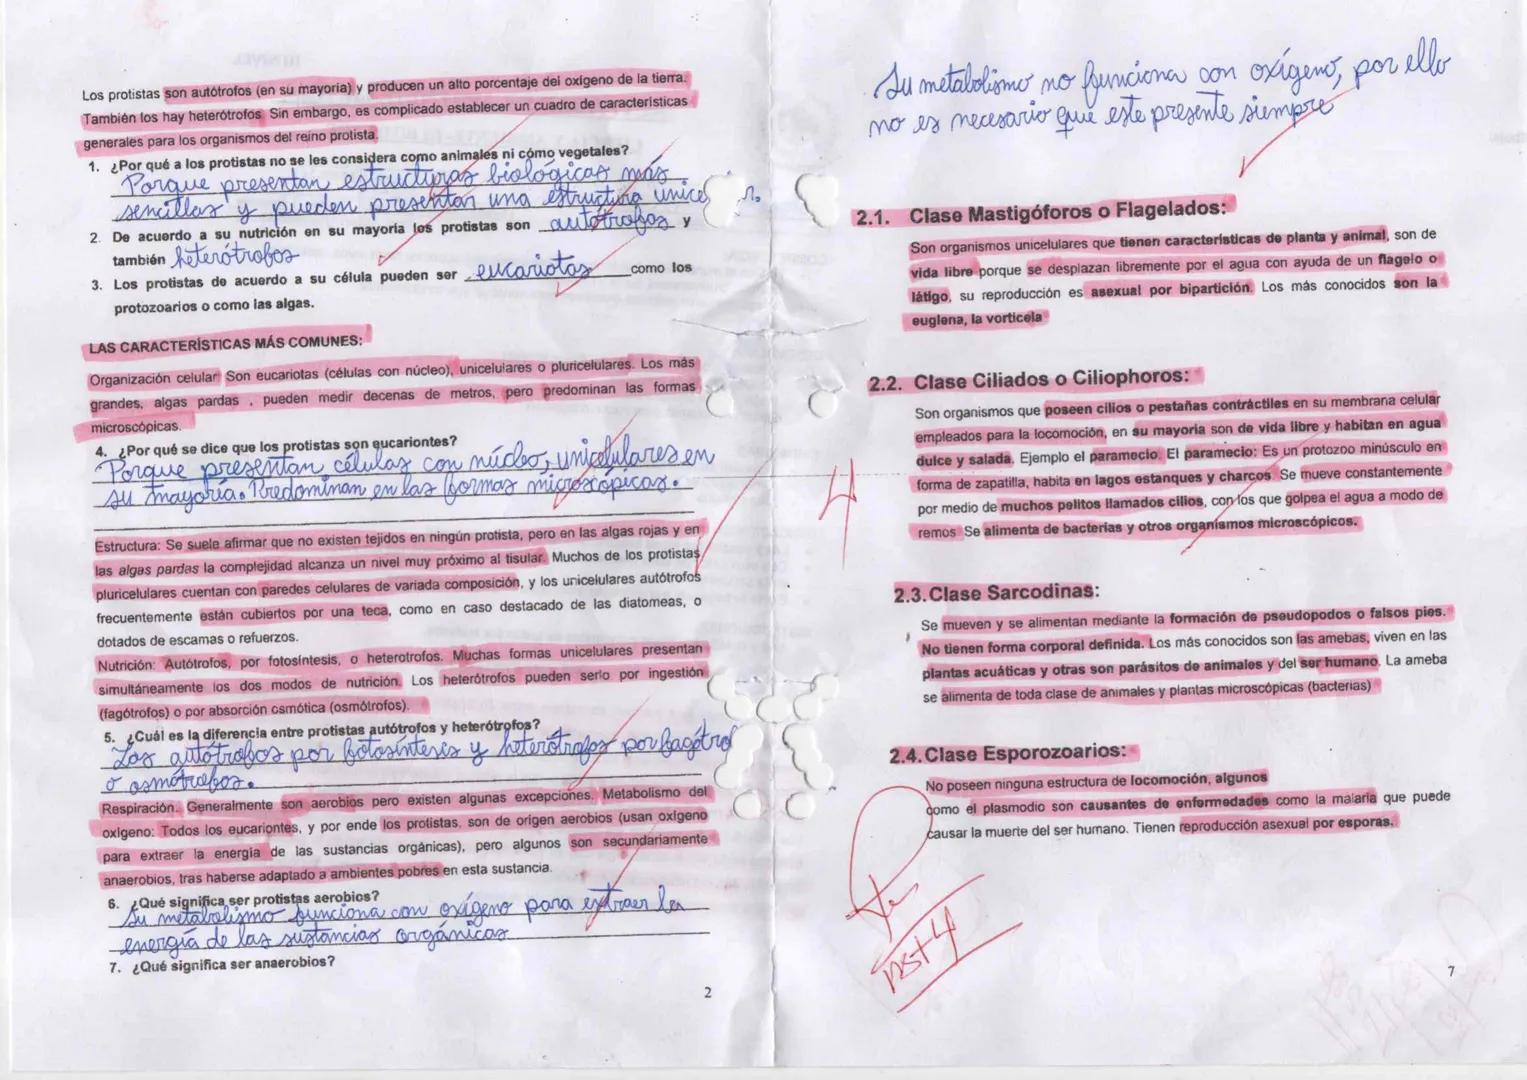 Los protistas son autótrofos (en su mayoria) y producen un alto porcentaje del oxígeno de la tierra.
También los hay heterótrofos. Sin embargo, es complicado establecer un cuadro de características
generales para los organismos del reino protista.
1. ¿Por qué a los protistas no se les considera como animales ni cómo vegetales?
Porque presentan estructuras biológicas más
sencillas y pueden presentar una estructura unice
2. De acuerdo a su nutrición en su mayoría los protistas son autótrofos y
también heterótrofos
3. Los protistas de acuerdo a su célula pueden ser eucariotas como los
protozoarios o como las algas.
LAS CARACTERÍSTICAS MÁS COMUNES:
Organización celular Son eucariotas (células con núcleo), unicelulares o pluricelulares. Los más
grandes, algas pardas , pueden medir decenas de metros, pero predominan las formas
microscópicas.
4. ¿Por qué se dice que los protistas son eucariontes?
Porque presentan células con núcleo, unicelulares en
su mayoría. Predominan en las formas microscópicas.
Estructura: Se suele afirmar que no existen tejidos en ningún protista, pero en las algas rojas y en
las algas pardas la complejidad alcanza un nivel muy próximo al tisular. Muchos de los protistas
pluricelulares cuentan con paredes celulares de variada composición, y los unicelulares autótrofos
frecuentemente están cubiertos por una teca, como en caso destacado de las diatomeas, o
dotados de escamas o refuerzos.
Nutrición: Autótrofos, por fotosíntesis, o heterotrofos. Muchas formas unicelulares presentan
simultáneamente los dos modos de nutrición. Los heterótrofos pueden serlo por ingestión
(fagótrofos) o por absorción osmótica (osmótrofos).
5. ¿Cuál es la diferencia entre protistas autótrofos y heterótrofos?
Los autótrofos por fotosíntesis y heterótrofos por fagótrof
o osmótrofos.
Respiración. Generalmente son aerobios pero existen algunas excepciones. Metabolismo del
oxígeno: Todos los eucariontes, y por ende los protistas, son de origen aerobios (usan oxígeno
para extraer la energía de las sustancias orgánicas), pero algunos son secundariamente
anaerobios, tras haberse adaptado a ambientes pobres en esta sustancia.
6. ¿Qué significa ser protistas aerobios?
Su metabolismo funciona con oxígeno para extraer la
energía de las sustancias orgánicas
7. ¿Qué significa ser anaerobios?
2
Su metabolismo no funciona con oxígeno, por ello
no es necesario que este presente siempre
2.1. Clase Mastigóforos o Flagelados:
Son organismos unicelulares que tienen características de planta y animal, son de
vida libre porque se desplazan libremente por el agua con ayuda de un flagelo o
látigo, su reproducción es asexual por bipartición. Los más conocidos son la
euglena, la vorticela
4
2.2. Clase Ciliados o Ciliophoros:
Son organismos que poseen cilios o pestañas contráctiles en su membrana celular
empleados para la locomoción, en su mayoría son de vida libre y habitan en agua
dulce y salada. Ejemplo el paramecio. El paramecio: Es un protozoo minúsculo en
forma de zapatilla, habita en lagos estanques y charcos. Se mueve constantemente
por medio de muchos pelitos llamados cilios, con los que golpea el agua a modo de
remos Se alimenta de bacterias y otros organismos microscópicos.
2.3. Clase Sarcodinas:
Se mueven y se alimentan mediante la formación de pseudopodos o falsos pies.
No tienen forma corporal definida. Los más conocidos son las amebas, viven en las
plantas acuáticas y otras son parásitos de animales y del ser humano. La ameba
se alimenta de toda clase de animales y plantas microscópicas (bacterias)
2.4. Clase Esporozoarios:
No poseen ninguna estructura de locomoción, algunos
como el plasmodio son causantes de enfermedades como la malaria que puede
causar la muerte del ser humano. Tienen reproducción asexual por esporas.
7